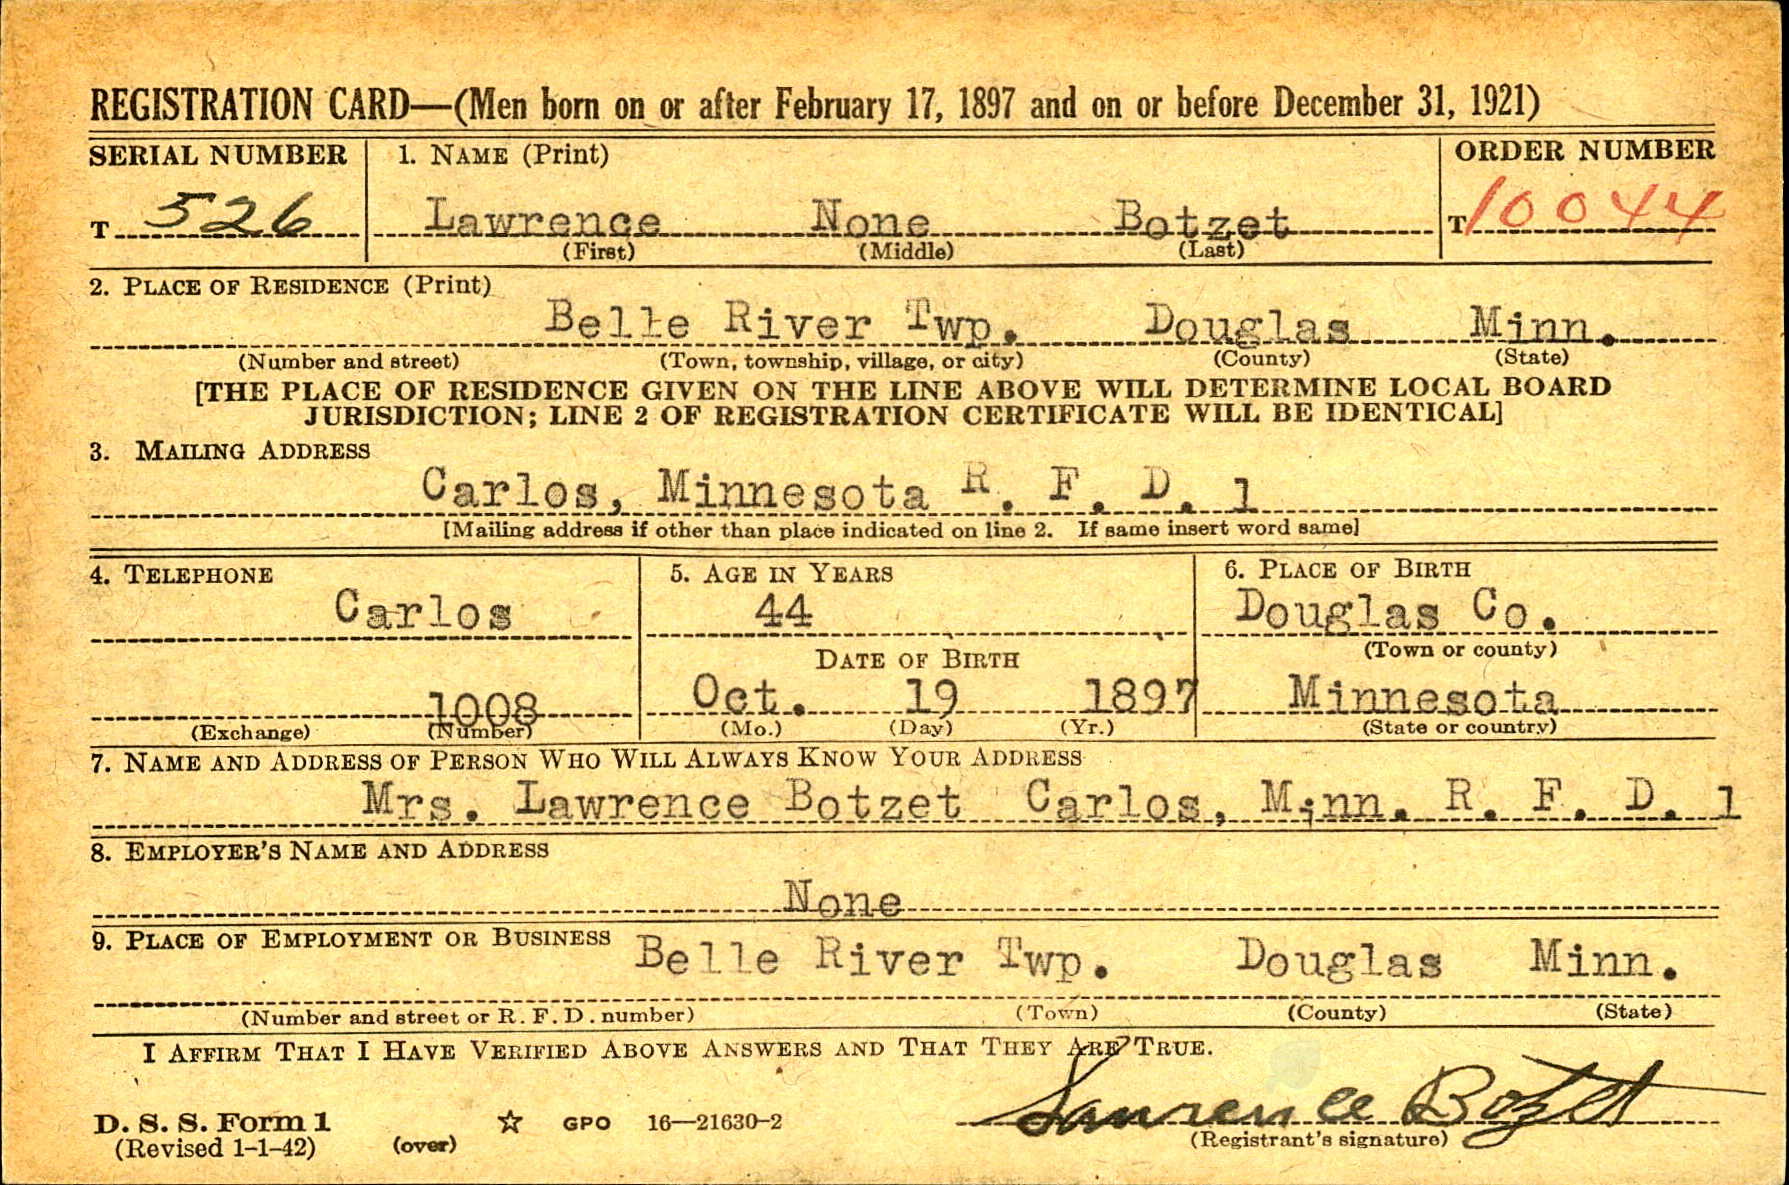 REGISTRATION CARD—(Men born on or after February 17, 1897 and on or before December 31, 1921)
SERIAL NUMBER 1. NAME (Print) ORDER NUMBER
T 526 Lawrence None Botzet T 10044
(First) (Middle) (Last)
2. PLACE OF RESIDENCE (Print)
Belle River Twp. Douglas Minn.
(Number and street) (Town, township, village, or city) (County) (State)
[THE PLACE OF RESIDENCE GIVEN ON THE LINE ABOVE WILL DETERMINE LOCAL BOARD
JURISDICTION; LINE 2 OF REGISTRATION CERTIFICATE WILL BE IDENTICAL]
3. MAILING ADDRESS
Carlos, Minnesota R. F. D. 1
[Mailing address if other than place indicated on line 2. If same insert word same]
4. TELEPHONE 5. AGE IN YEARS 6. PLACE OF BIRTH
Carlos 44 Douglas Co.
DATE OF BIRTH (Town or county)
1008 Oct. 19 1897 Minnesota
(Exchange) (Number) (Mo.) (Day) (Yr.) (State or country)
7. NAME AND ADDRESS OF PERSON WHO WILL ALWAYS KNOW YOUR ADDRESS
Mrs. Lawrence Botzet Carlos, Minn. R. F. D. 1
8. EMPLOYER'S NAME AND ADDRESS
None
9. PLACE OF EMPLOYMENT OR BUSINESS
Belle River Twp. Douglas Minn.
(Number and street or R. F. D. number) (Town) (County) (State)
I AFFIRM THAT I HAVE VERIFIED ABOVE ANSWERS AND THAT THEY ARE TRUE.
D. S. S. Form 1 ☆ GPO 16—21630-2 Lawrence Botzet
(Revised 1-1-42) (over) (Registrant's signature)